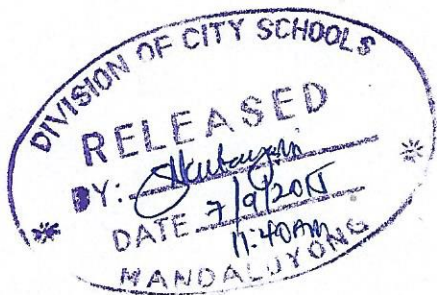 DIVISION OF CITY SCHOOLS
RELEASED
BY:
DATE 7/9/2015
11:40AM
MANDALUYONG